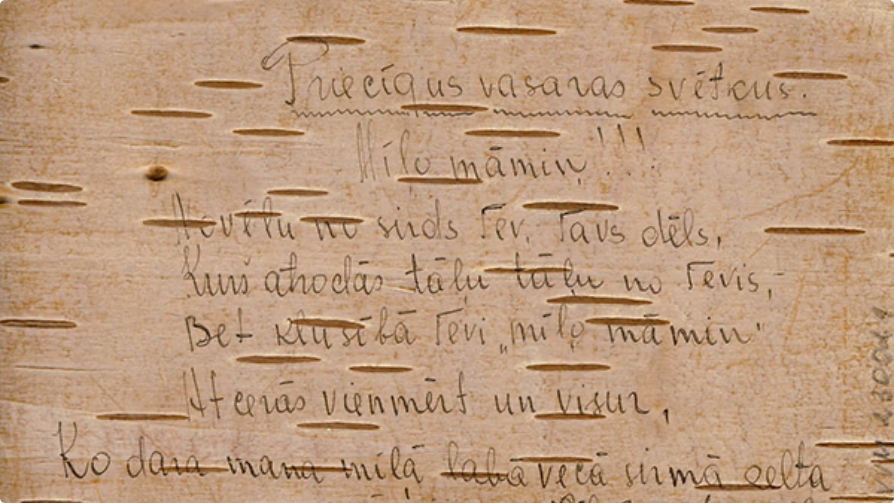 Priecīgus vasaras svētkus.
Mīļo māmiņ!!!
Novēlu no sirds Tev, Tavs dēls,
Kurš atrodās tāļu tāļu no Tevis,
Bet klusībā Tevi „mīļo māmiņ"
Atcerās vienmērt un visur,
Ko dara mana mīļā labā vecā sirmā